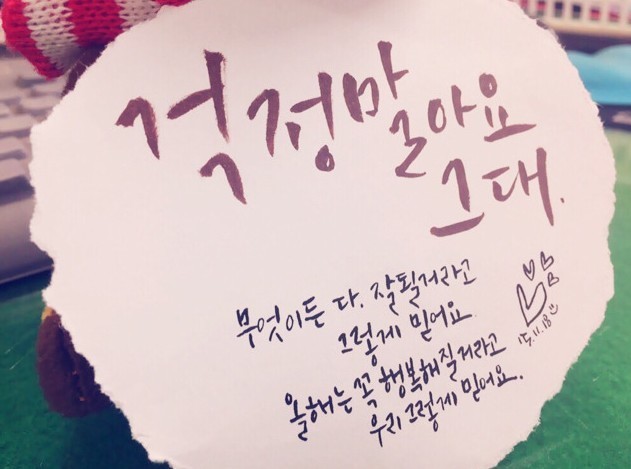 걱정말아요
그대.
무엇이든 다. 잘될거라고
그렇게 믿어요.
올해는 꼭 행복해질거라고
우리 그렇게 믿어요.
15.11.18